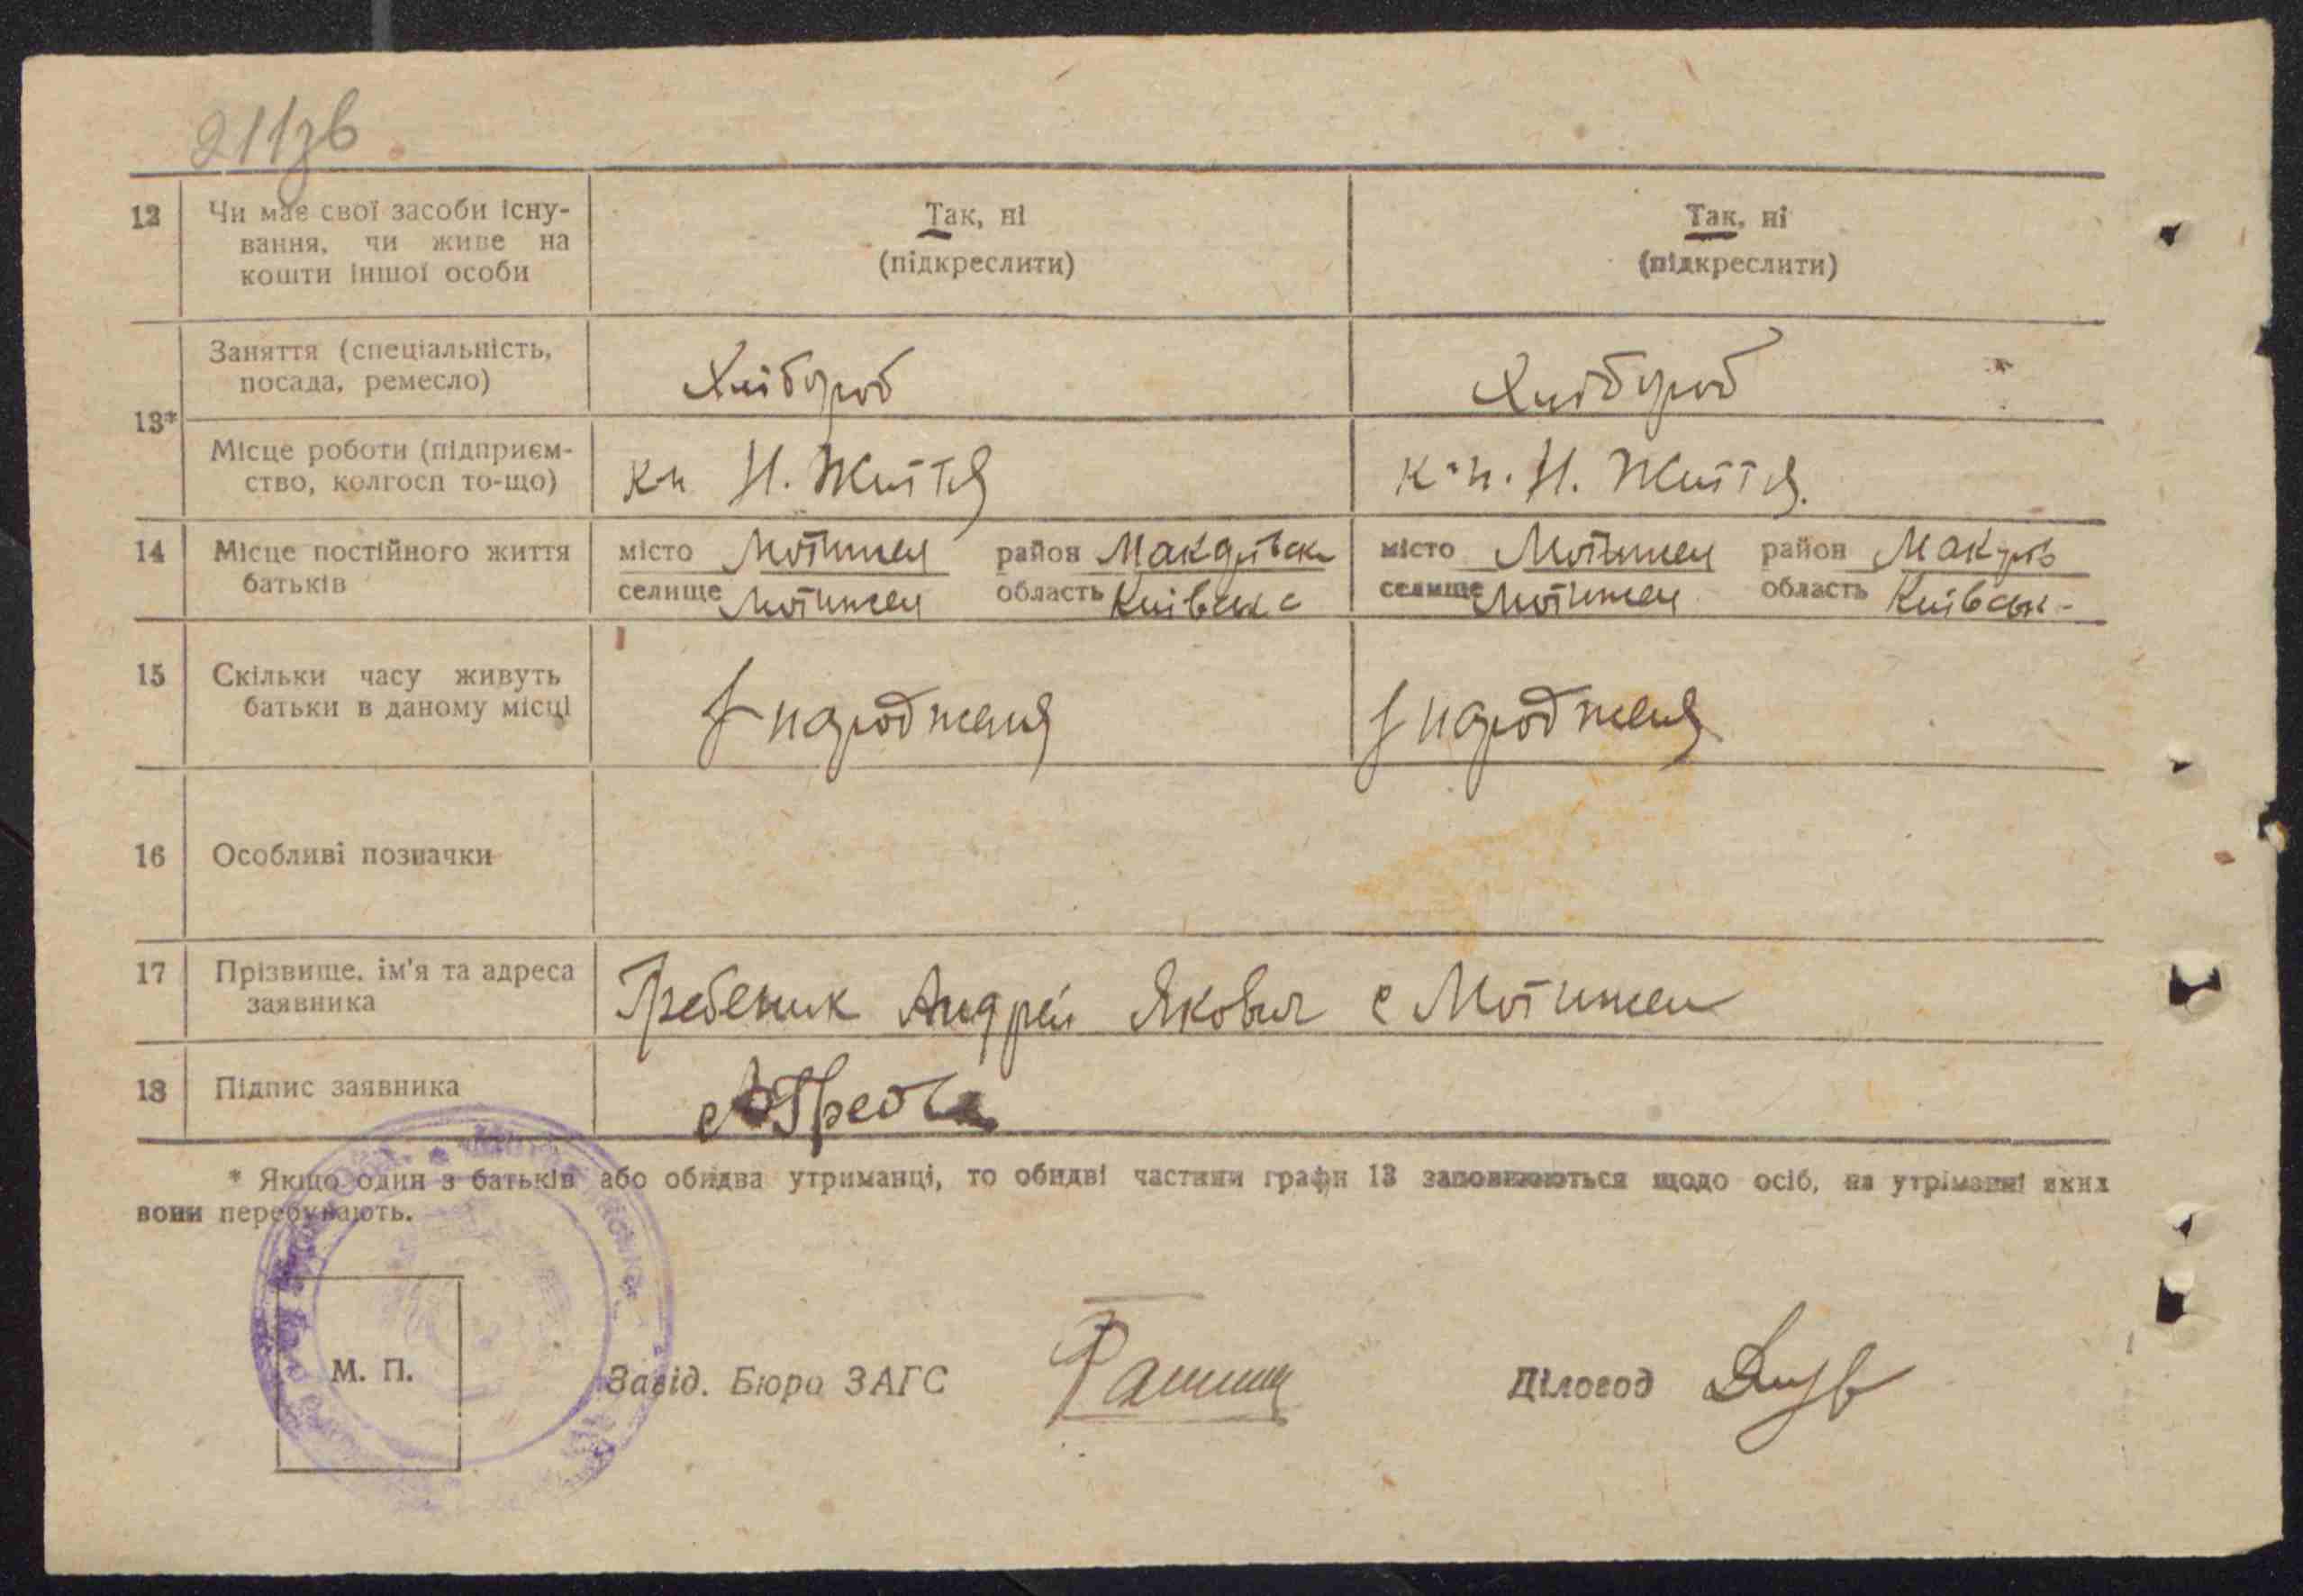 211зв
12 Чи має свої засоби існу- Так, ні Так, ні
вання, чи живе на (підкреслити) (підкреслити)
кошти іншої особи
13*
Заняття (спеціальність, Хлібороб Хлібороб
посада, ремесло)
Місце роботи (підприєм- Н. Життя Н. Життя
ство, колгосп то-що)
14 Місце постійного життя місто Мотижен район Макарівськ місто Мотижен район Макарів
батьків селище Мотижен область Київськ селище Мотижен область Київськ
15 Скільки часу живуть з народженя з народженя
батьки в даному місці
16 Особливі позначки
17 Прізвище, ім'я та адреса Гребеник Андрей Якович с Мотижен
заявника
18 Підпис заявника
* Якщо один з батьків або обидва утриманці, то обидві частини графи 13 заповнюються щодо осіб, на утріманні яких
вони перебувають.
М. П.
Завід. Бюро ЗАГС Діловод